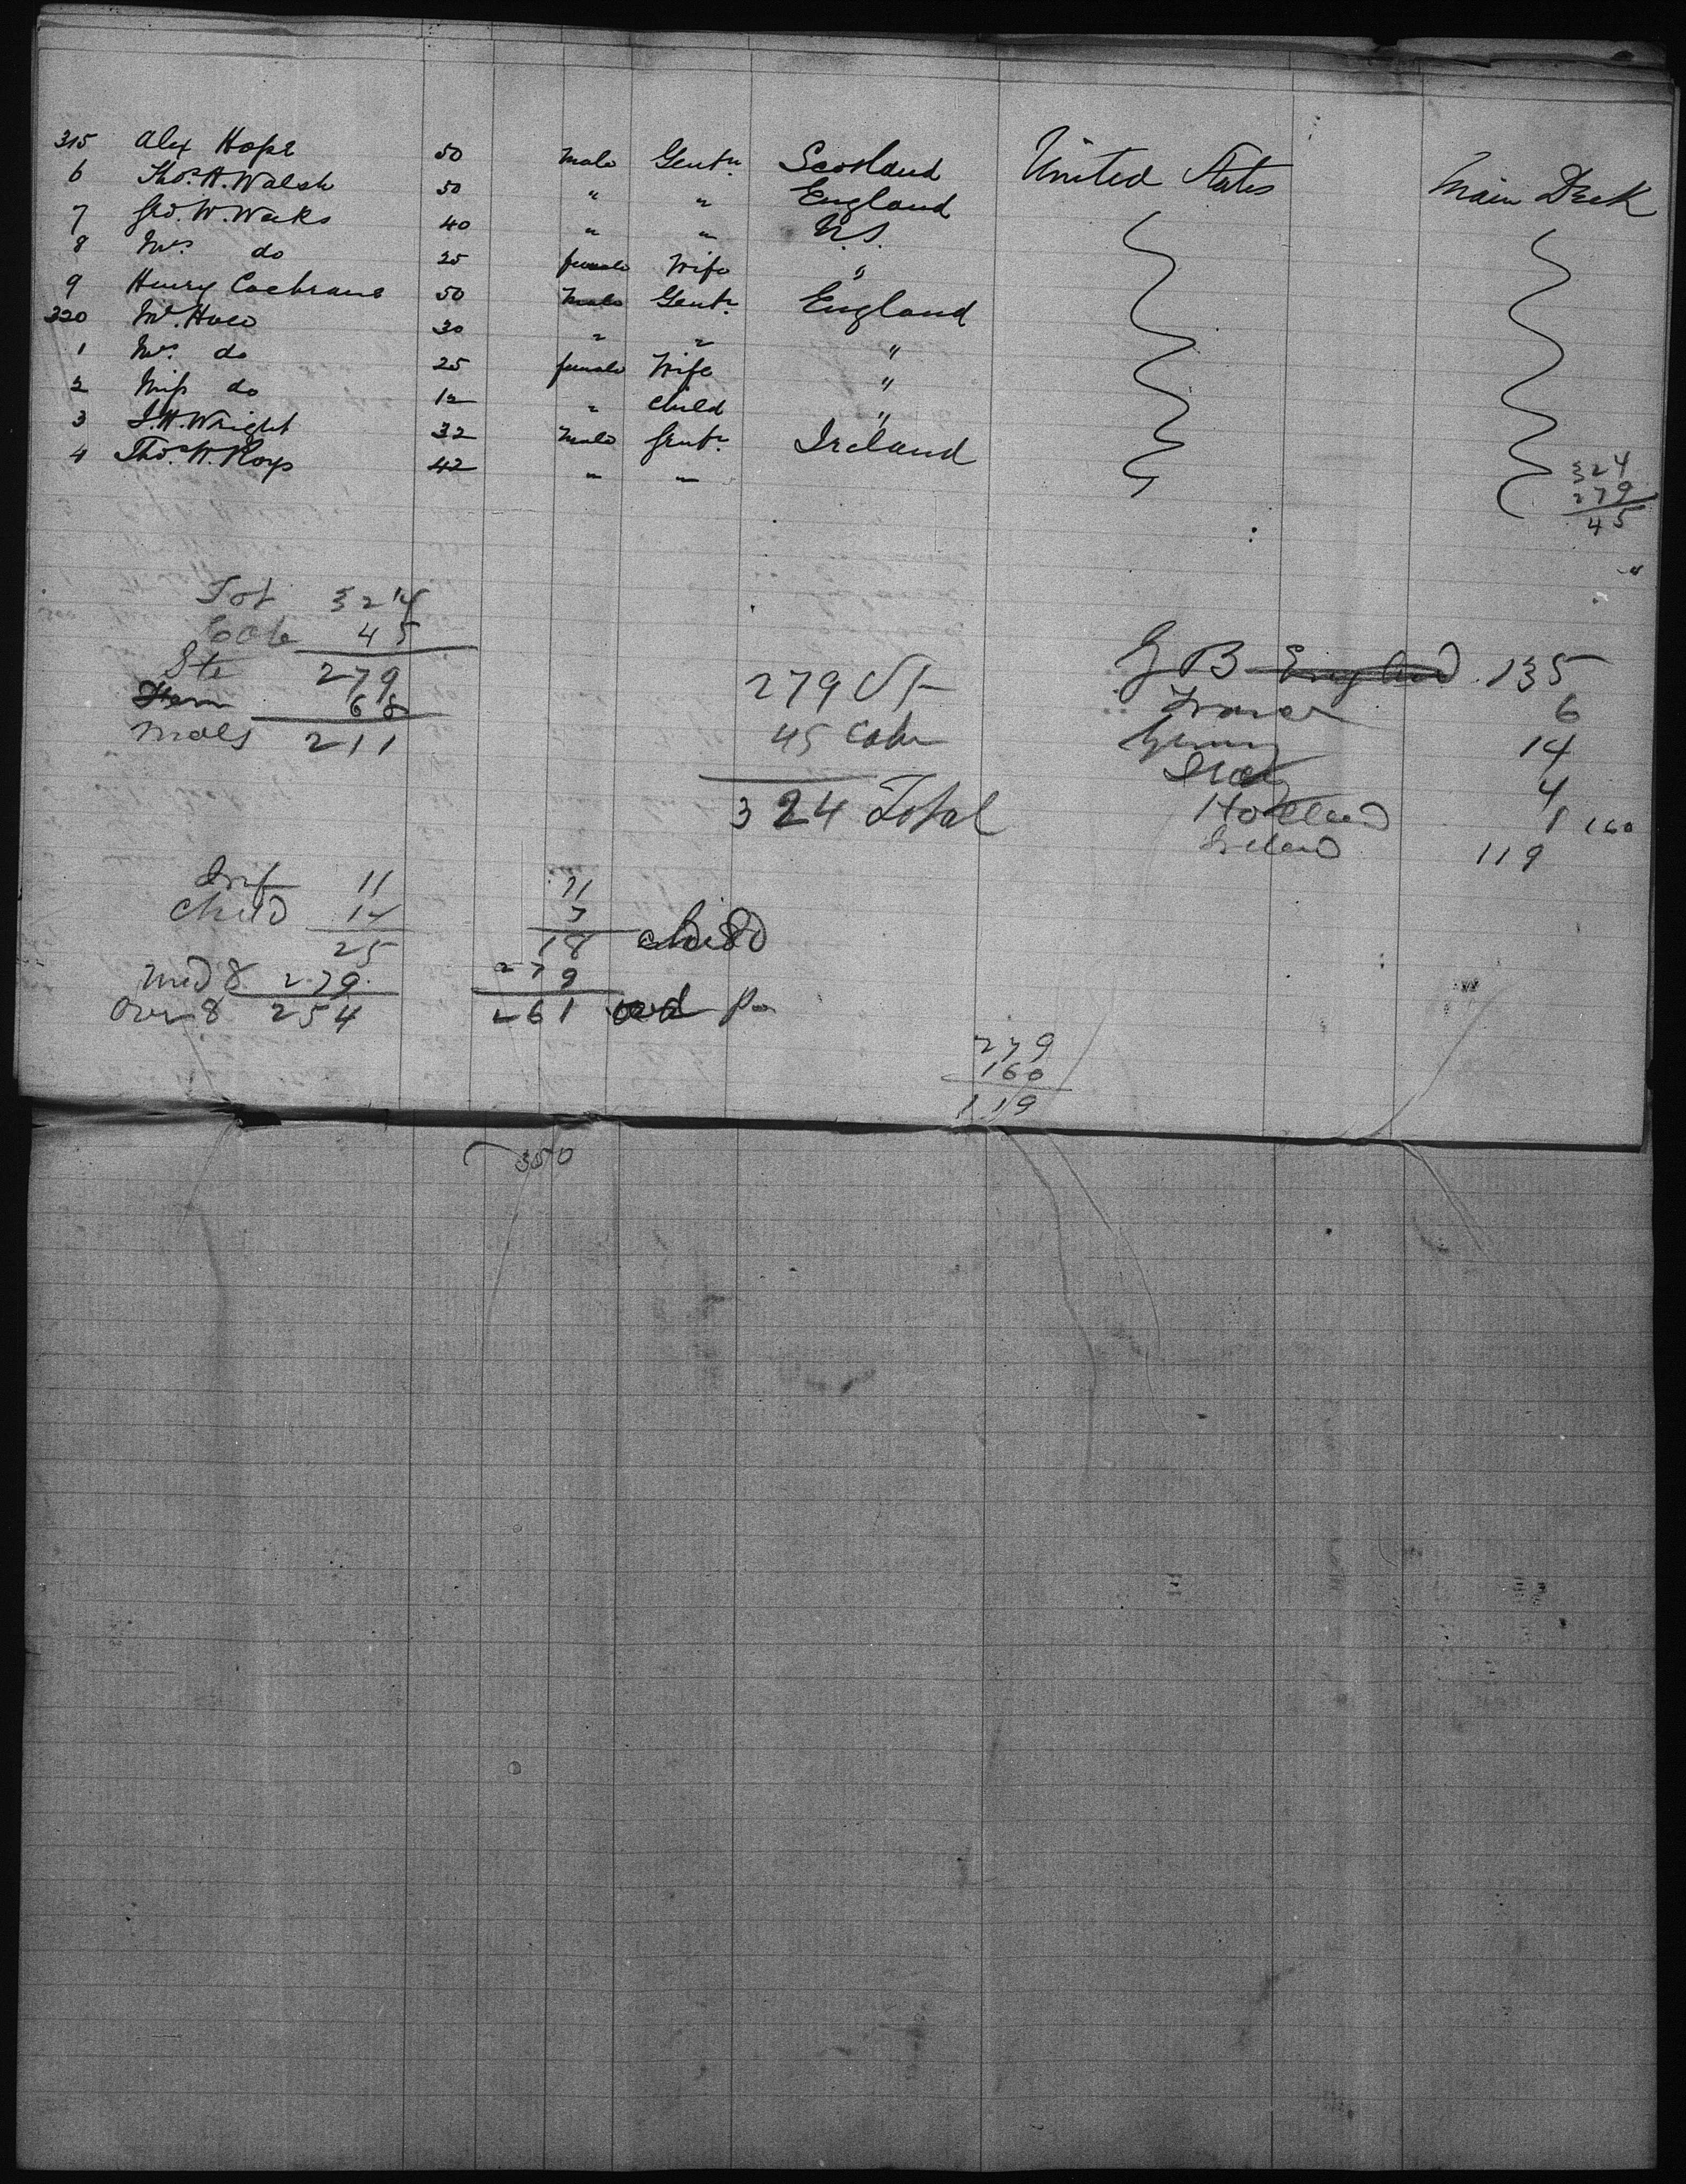 315 Alex Hope 50 Male Gentn. Scotland United States Main Deck
6 Thos. H. Walsh 50 " " England
7 Geo. W. Weeks 40 " " U.S.
8 Mrs do 25 female Wife "
9 Henry Cochrane 50 Male Gentn. England
320 Mr. 30 " " "
1 Mrs. do 25 female Wife "
2 Miss do 12 " Child "
3 J. H. Wright 32 Male Gentn. Ireland
4 Thos. W. Roys 42 " "
324
279
45
Tot 324
Cab 45
Ste 279
Fem 68
Males 211
279 St
45 Cabn
324 Total
G B England 135
France 6
Germy 14
Italy 4
Holland 1 160
Ireland 119
Inf 11
Child 14
25
Und 8 279
Over 8 254
11
7
18 child
279
261
279
160
119
350